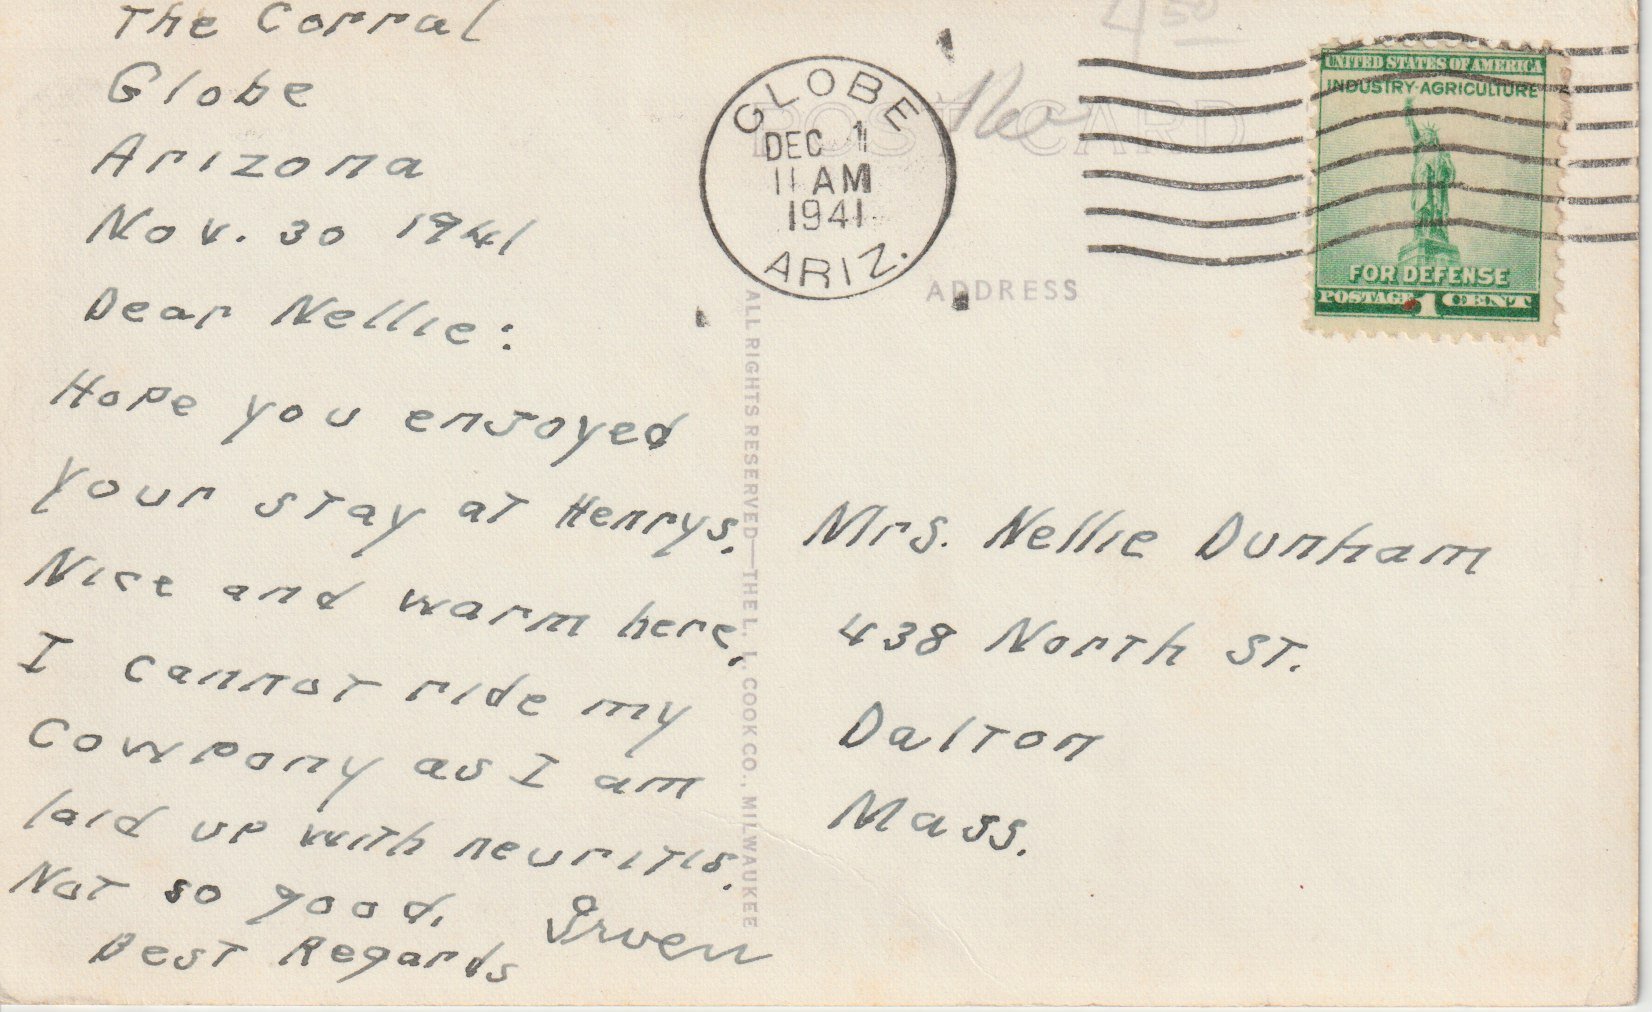 The Corral
Globe
Arizona
Nov. 30 1941
Dear Nellie:
Hope you enjoyed
your stay at Henrys.
Nice and warm here,
I cannot ride my
Cow pony as I am
laid up with neuritis.
Not so good.
Best Regards
Irven
4 50
POST CARD
GLOBE
DEC 1
11 AM
1941
ARIZ.
UNITED STATES OF AMERICA
INDUSTRY·AGRICULTURE
FOR DEFENSE
POSTAGE 1 CENT
ADDRESS
ALL RIGHTS RESERVED—THE L. L. COOK CO., MILWAUKEE
Mrs. Nellie Dunham
438 North St.
Dalton
Mass.